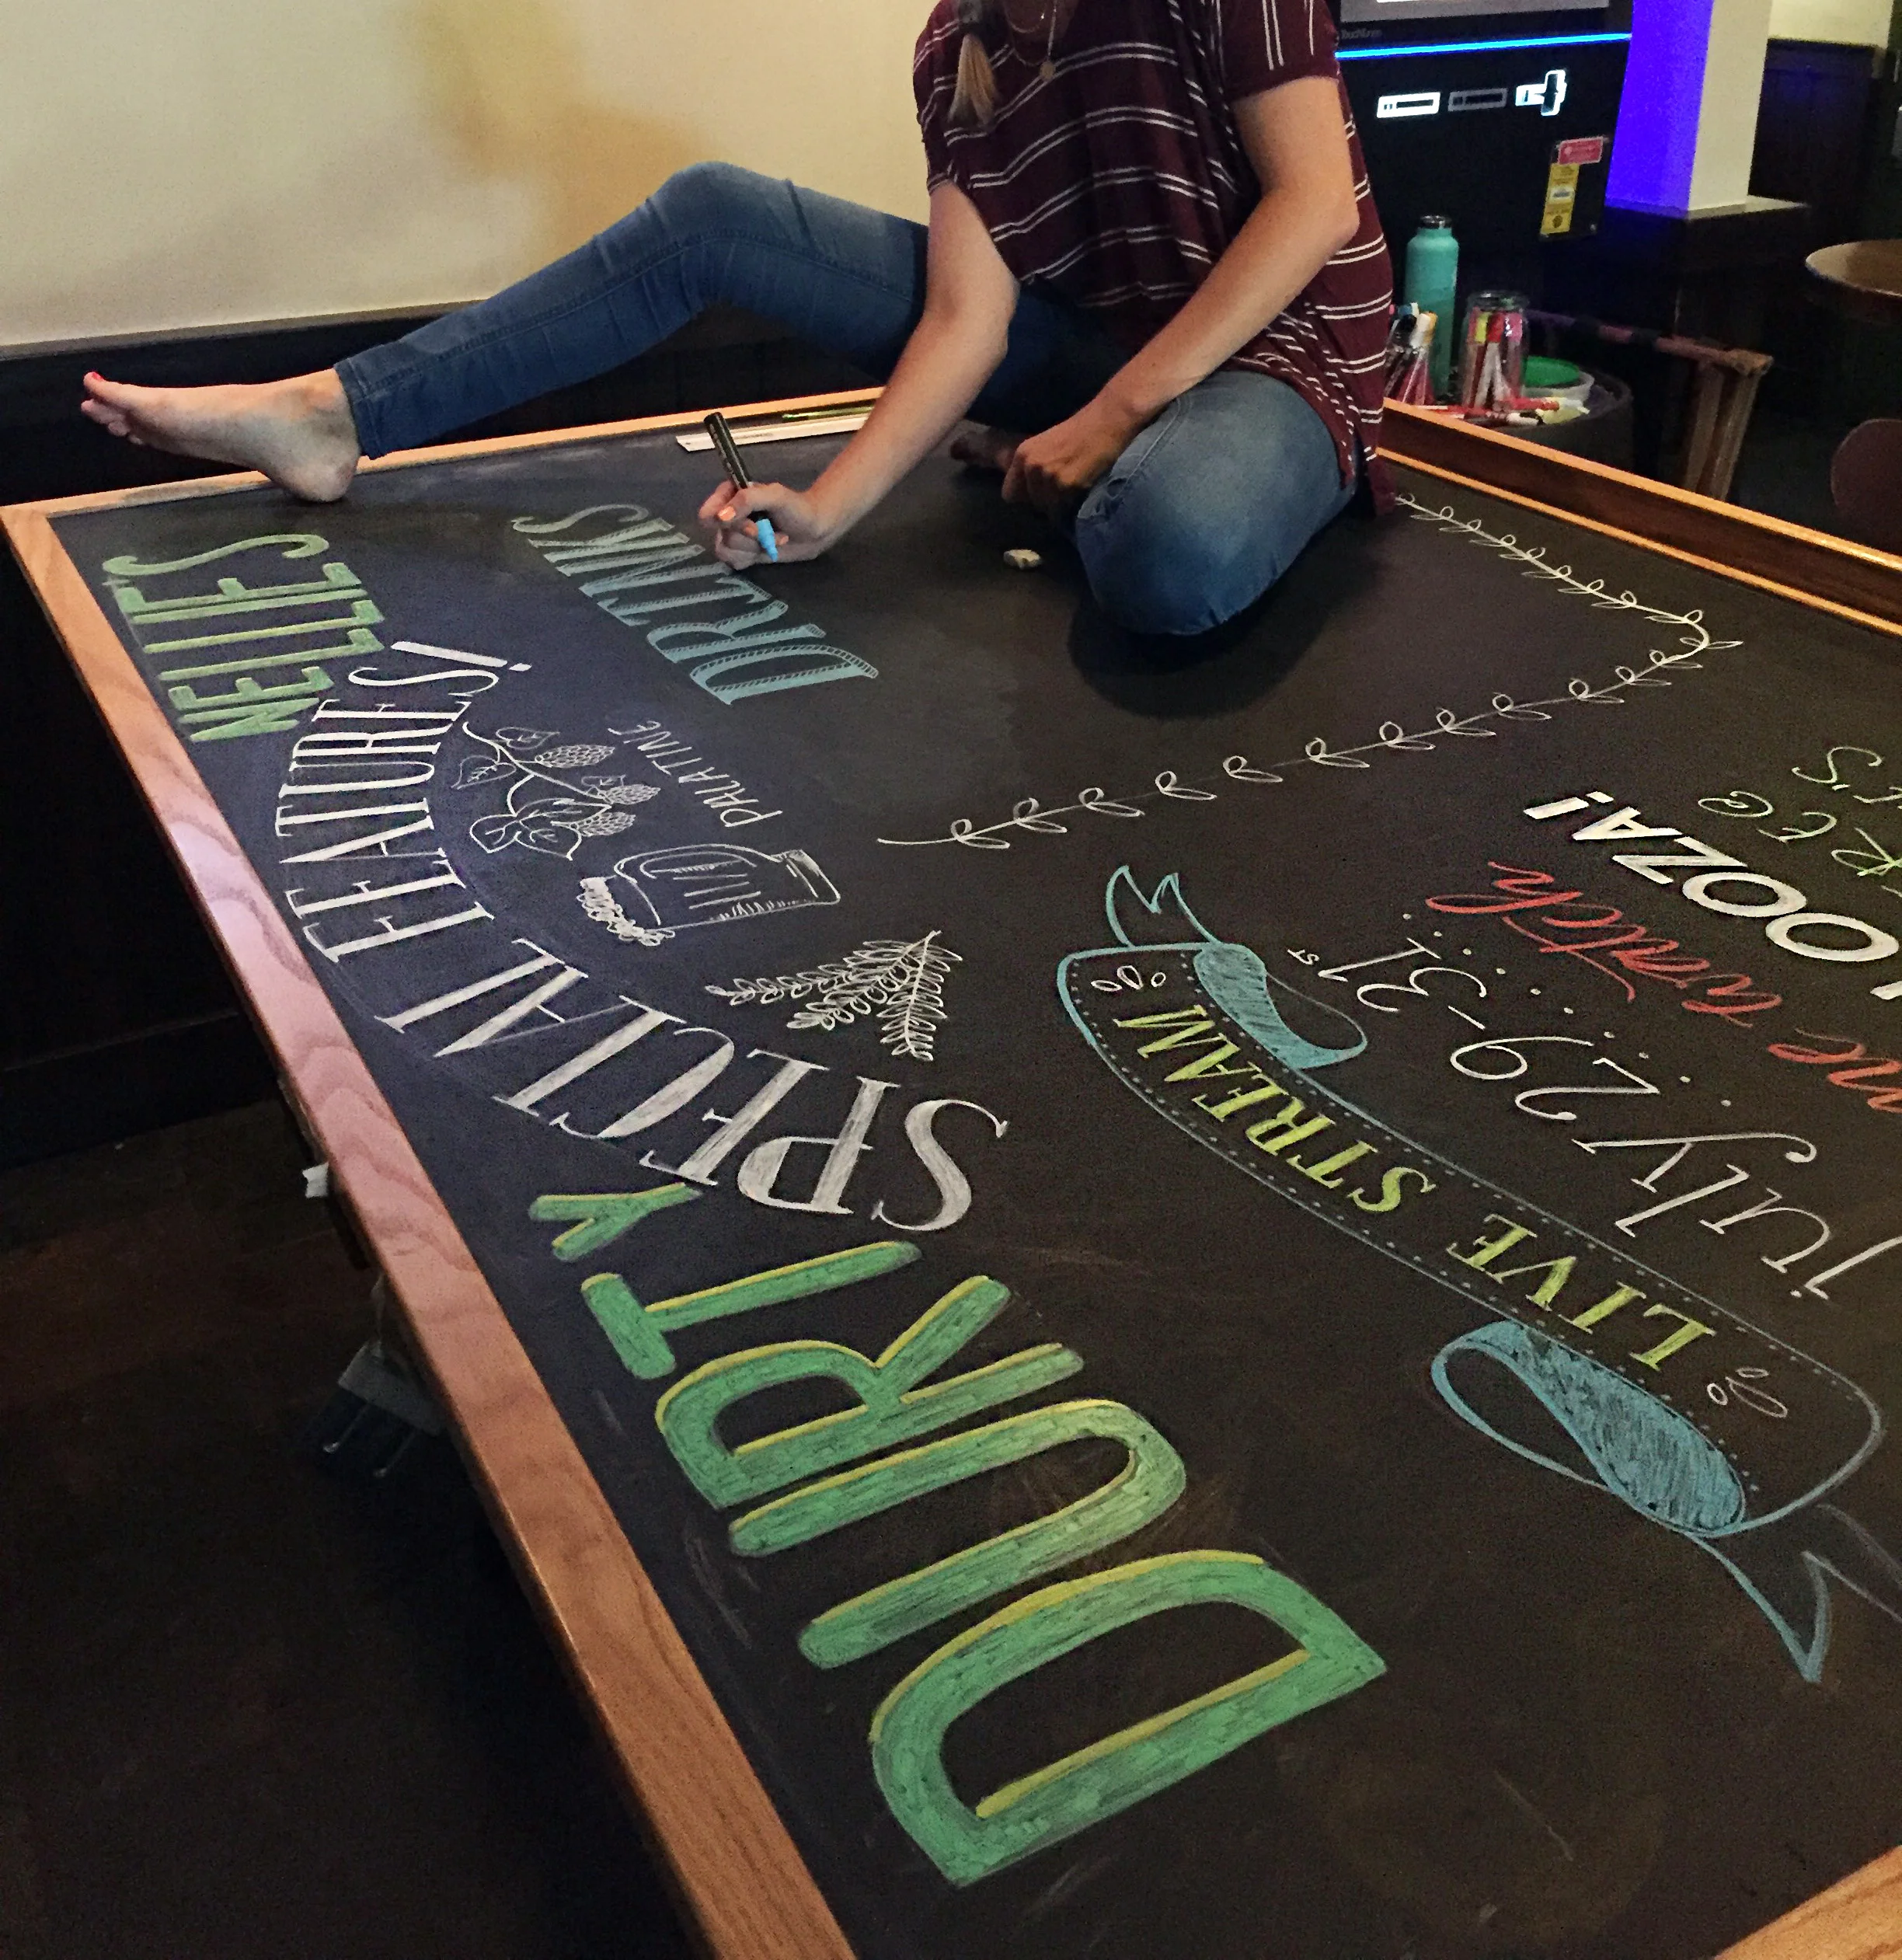 DURTY NELLIES
SPECIAL FEATURES!
PALATINE
DRINKS
LIVE STREAM
july 29-31ST
watch
OOZA!